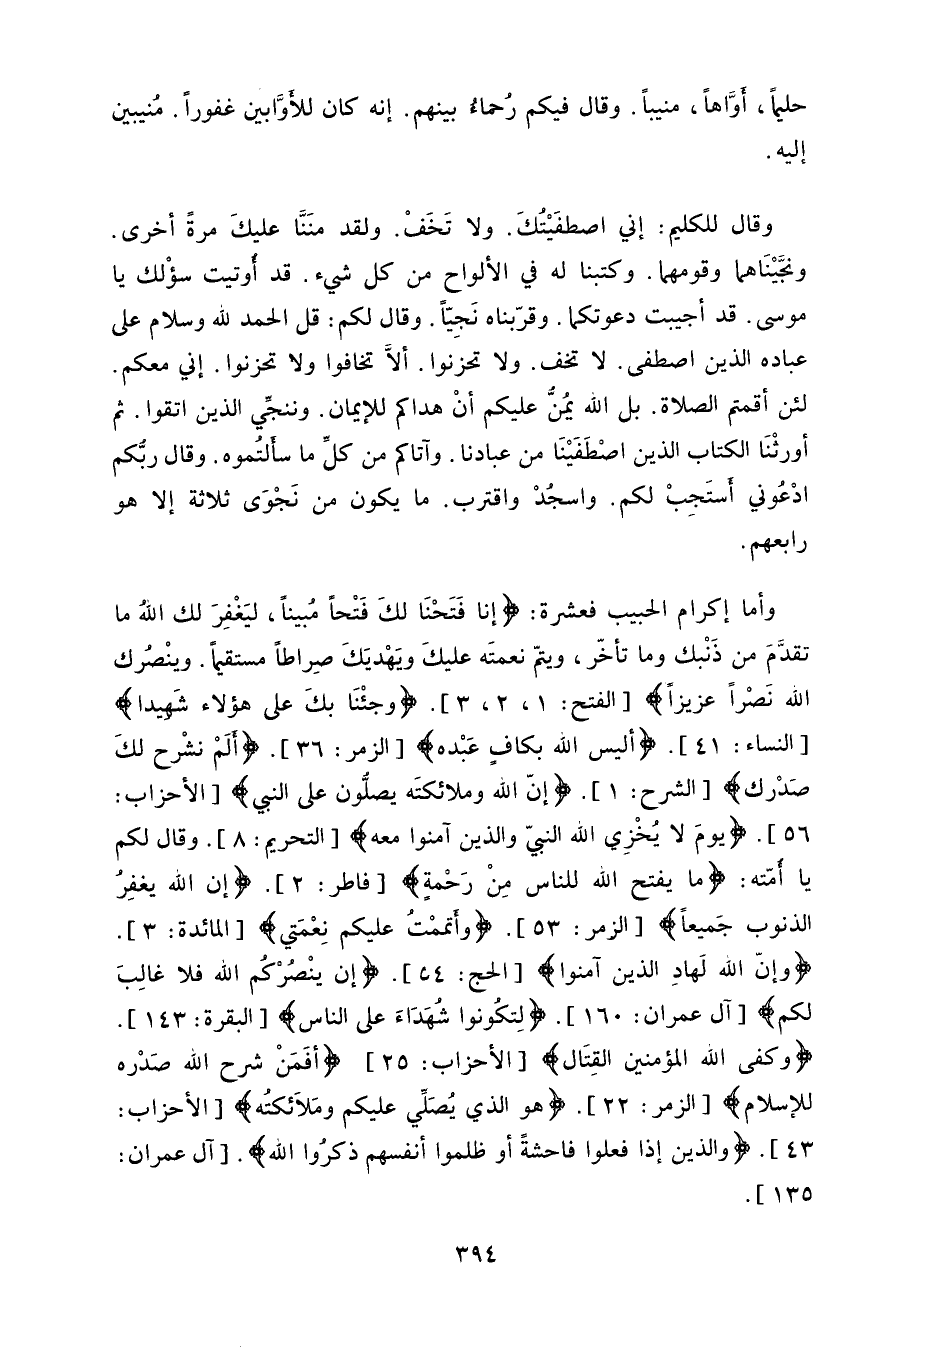 حليماً، أَوَّاهاً، منيباً. وقال فيكم رُحماءُ بينهم. إنه كان للأَوَّابين غفوراً. مُنيبين
إليه.
وقال للكليم: إني اصطفَيْتُكَ. ولا تَخَفْ. ولقد منَنَّا عليكَ مرةً أخرى.
ونجَّيْنَاهما وقومهما. وكتبنا له في الألواح من كل شيء. قد أُوتيت سؤْلك يا
موسى. قد أجيبت دعوتكما. وقرّبناه نَجِيّاً. وقال لكم: قل الحمد لله وسلام على
عباده الذين اصطفى. لا تخف. ولا تحزنوا. ألاَّ تخافوا ولا تحزنوا. إني معكم.
لئن أقمتم الصلاة. بل الله يَمُنُّ عليكم أنْ هداكم للإيمان. وننجِّي الذين اتقوا. ثم
أورثْنَا الكتاب الذين اصْطَفَيْنَا من عبادنا. وآتاكم من كلِّ ما سأَلتُموه. وقال ربُّكم
ادْعُوني أَستَجِبْ لكم. واسجُدْ واقترب. ما يكون من نَجْوَى ثلاثة إلا هو
رابعهم.
وأما إكرام الحبيب فعشرة: ﴿إنا فَتَحْنَا لكَ فَتْحاً مُبيناً، ليَغْفِرَ لك اللهُ ما
تقدَّمَ من ذَنْبك وما تأخّر، ويتمّ نعمتَه عليكَ ويَهْديَكَ صِراطاً مستقيماً. وينْصُرك
الله نَصْراً عزيزاً﴾ [الفتح: ١، ٢، ٣]. ﴿وجئْنَا بكَ على هؤلاء شَهِيدا﴾
[النساء: ٤١]. ﴿أليس الله بكافٍ عَبْده﴾ [الزمر: ٣٦]. ﴿أَلَمْ نشْرح لكَ
صَدْرك﴾ [الشرح: ١]. ﴿إنّ الله وملائكتَه يصلُّون على النبي﴾ [الأحزاب:
٥٦]. ﴿يومَ لا يُخْزِي الله النبيّ والذين آمنوا معه﴾ [التحريم: ٨]. وقال لكم
يا أُمّته: ﴿ما يفتح الله للناس مِنْ رَحْمةٍ﴾ [فاطر: ٢]. ﴿إن الله يغفِرُ
الذنوب جَميعاً﴾ [الزمر: ٥٣]. ﴿وأَتممْتُ عليكم نِعْمَتي﴾ [المائدة: ٣].
﴿وإنّ الله لَهادِ الذين آمنوا﴾ [الحج: ٥٤]. ﴿إن ينْصُرْكُم الله فلا غالِبَ
لكم﴾ [آل عمران: ١٦٠]. ﴿لِتكُونوا شُهَدَاءَ على الناس﴾ [البقرة: ١٤٣].
﴿وكفى الله المؤمنين القِتَال﴾ [الأحزاب: ٢٥] ﴿أفَمَنْ شرح الله صَدْره
للإسلام﴾ [الزمر: ٢٢]. ﴿هو الذي يُصَلِّي عليكم ومَلاَئكتُه﴾ [الأحزاب:
٤٣]. ﴿والذين إذا فعلوا فاحشةً أو ظلموا أنفسهم ذكرُوا الله﴾. [آل عمران:
١٣٥].
٣٩٤